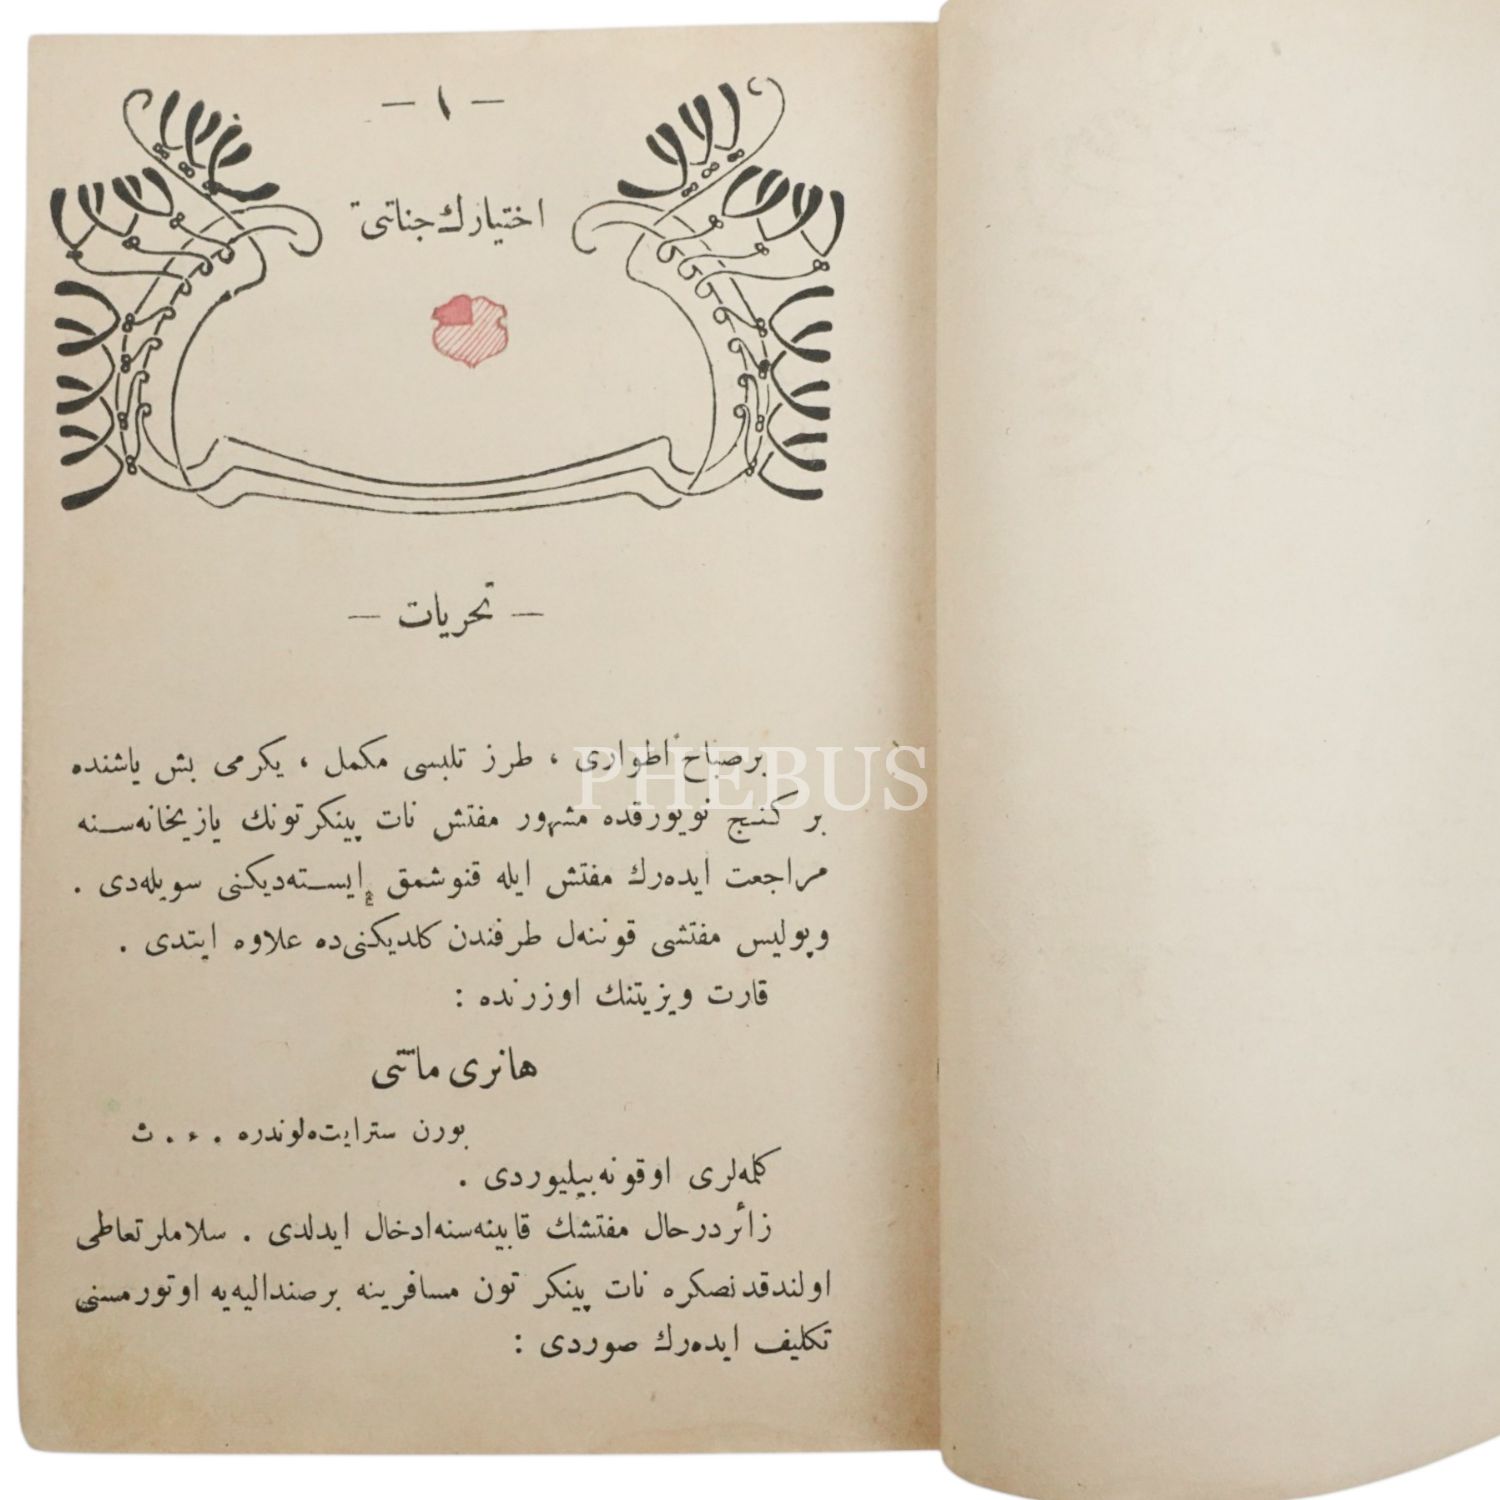 — ١ —
اختيارك جناتى
— تحريات —
بر صباح اطوارى ، طرز تلبسى مكمل ، يكرمى بش ياشنده
بر كنج نويورقده مشهور مفتش نات پينكرتونك يازيخانه‌سنه
مراجعت ايده‌رك مفتش ايله قنوشمق ايسته‌ديكنى سويله‌دى .
وپوليس مفتشى قوننه‌ل طرفندن كلديكنى‌ده علاوه ايتدى .
قارت ويزيتنك اوزرنده :
هانرى ماتتى
بورن سترايت‌ه لوندره . ء . ث
كلمه‌لرى اوقونه‌بيليوردى .
زائر درحال مفتشك قابينه‌سنه ادخال ايدلدى . سلاملر تعاطى
اولندقدنصكره نات پينكر تون مسافرينه بر صنداليه‌يه اوتورمسنى
تكليف ايده‌رك صوردى :
PHEBUS